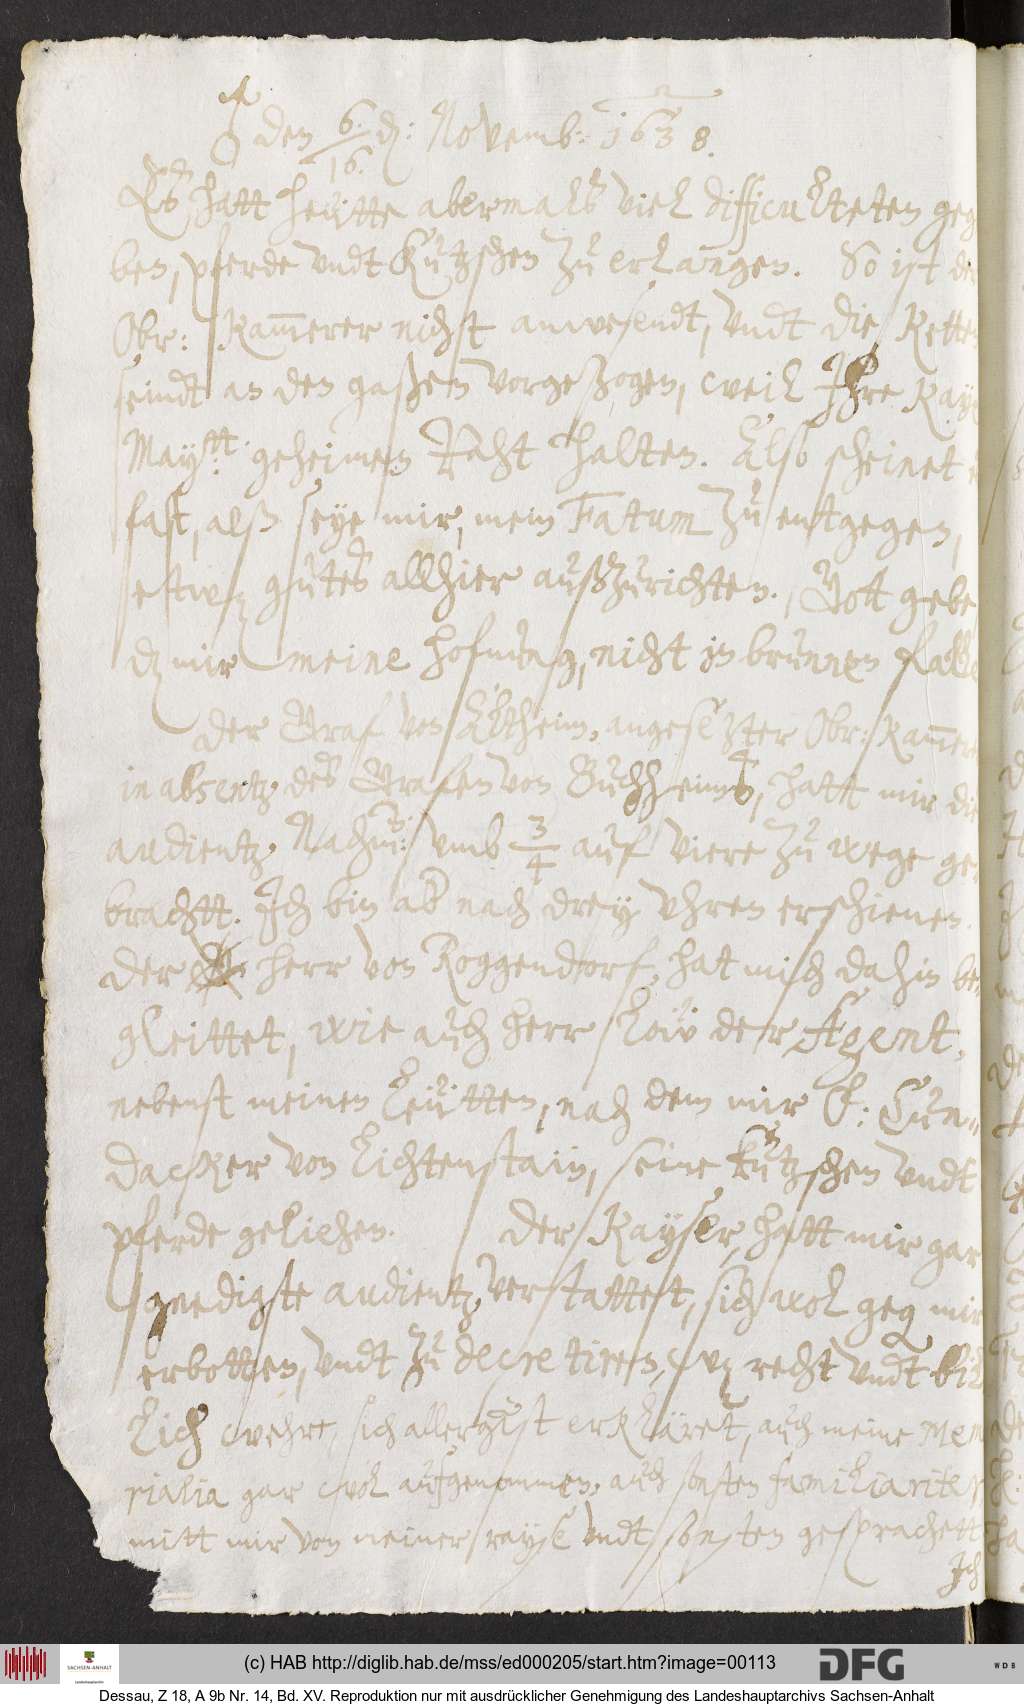 ♂ den 6./16. d: Novemb: 1638.
Es hatt heütte abermalß viel difficulteten geg
ben, pferde undt kutzschen zu erlangen. So ist der
Obr: Kam̅erer nicht anwesendt, undt die Ketten
seindt an den gaßen vorgezogen, weil Ihre Kay
May:tt: geheimen Raht halten. Also scheinet e
fast, alß seye mir, mein Fatum zu entgegen,
ettwz gutes allhier außzurichten. Gott gebe
dz mir meine hofnung, nicht in brunnen falle
Der Graf von Altheim, angesetzter Obr: Kam̅erer
in absentz des Grafen von Buchheimb, hatt mir die
audientz Nachm: umb 3/4 auf viere zu wege ge,
brachtt. Ich bin ab nach drey uhren erschienen.
Der herr von Roggendorf, hat mich dahin be,
gleittet, wie auch herr Löw der Agent,
nebenst meinen leütten, nach dem mir F: Gun,
dacker von Lichtenstain, seine kutzschen undt
pferde geliehen. Der Kayser, hatt mir gar
gnedigste audientz verstattett, sich wol geg mir
erbotten, undt zu decretiren, wz recht undt bil
lich wehre, sich allergst erkläret, auch meine Mem
rialia gar wol aufgenommen, auch sonsten familiariter
mitt mir von meiner rayse undt sonsten gesprachett
Ich
(c) HAB http://diglib.hab.de/mss/ed000205/start.htm?image=00113
SACHSEN-ANHALT
DFG
W D B
Dessau, Z 18, A 9b Nr. 14, Bd. XV. Reproduktion nur mit ausdrücklicher Genehmigung des Landeshauptarchivs Sachsen-Anhalt